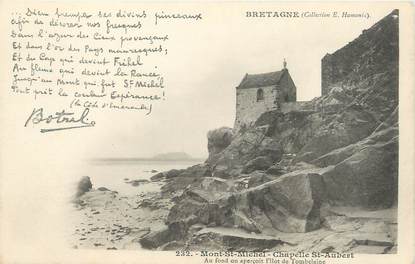 ... Dieu trempe ses divins pinceaux
Afin de décorer nos fresques
Dans l'azur des Cieux provençaux
Et dans l'or des Pays mauresques;
Et du Cap qui devint Fréhel
Au fleuve qui devint la Rance,
Jusqu'au Mont qui fut St Michel
Tout prit la couleur Espérance!
(La Côte d'Emeraude)
Botrel
BRETAGNE (Collection E. Hamonic)
232. - Mont-St-Michel - Chapelle St-Aubert
Au fond on aperçoit l'Ilot de Tombelaine